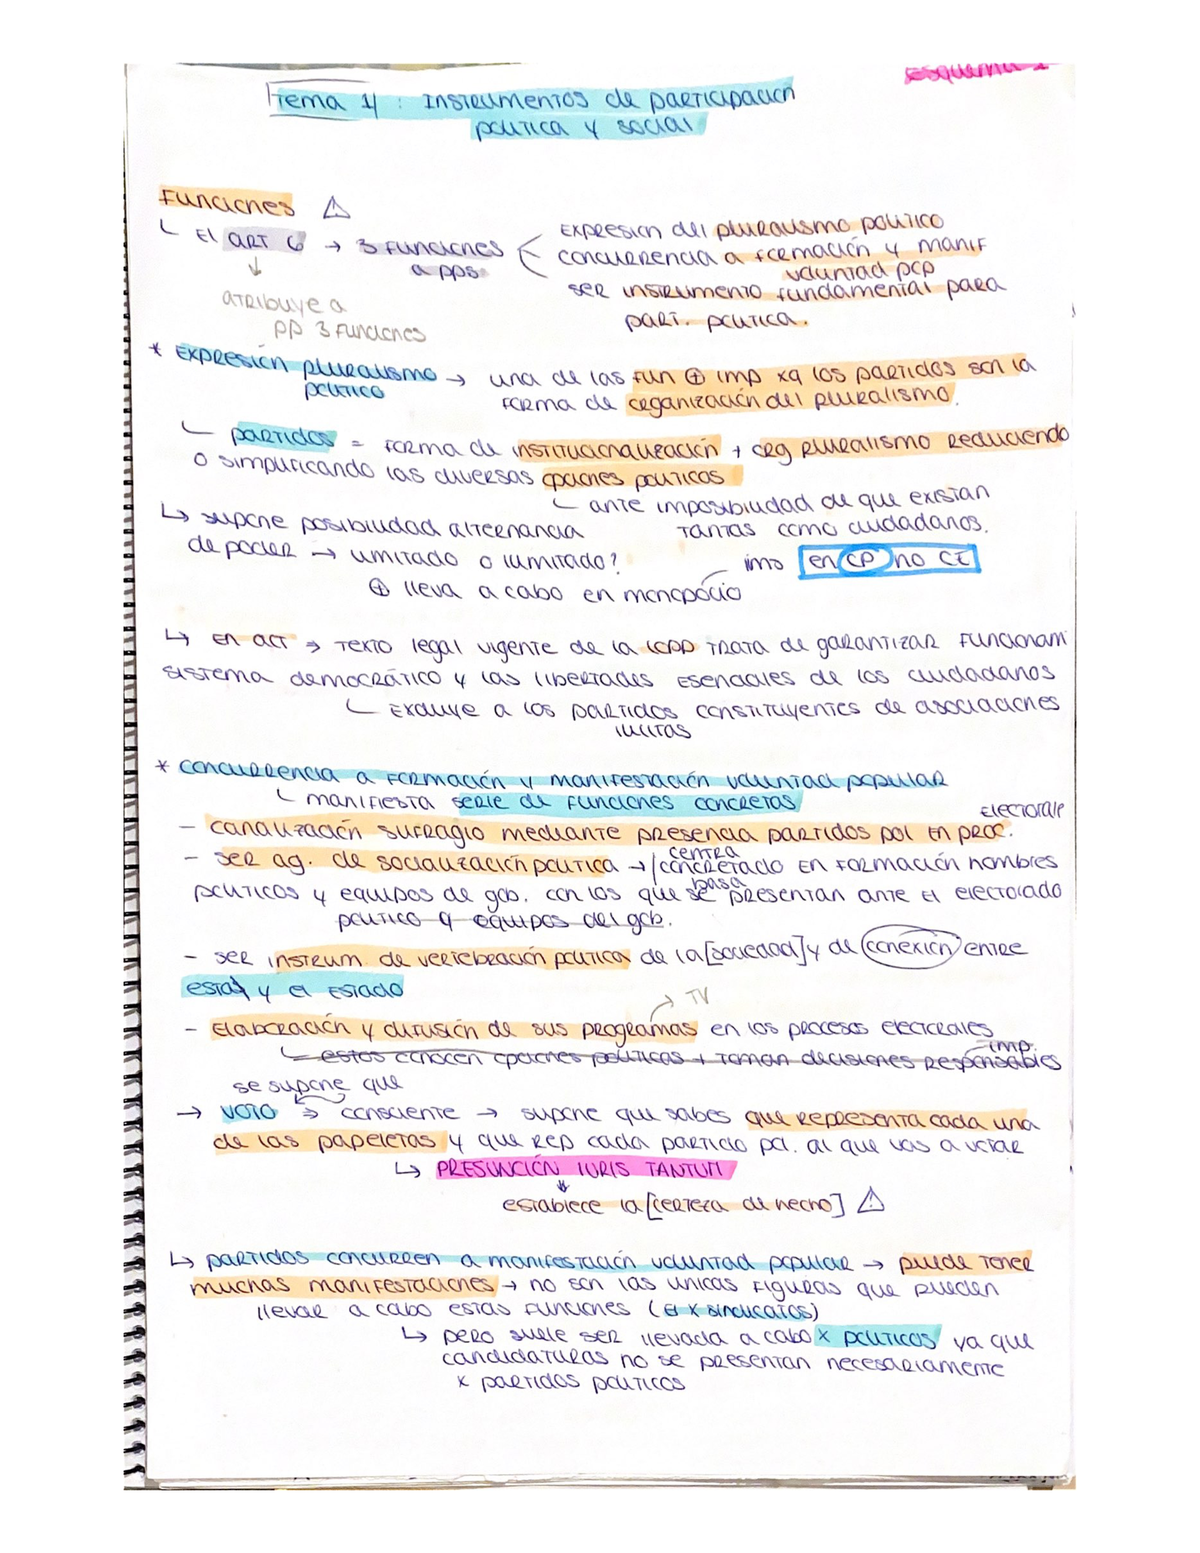 esquema 1
Tema 4 : Instrumentos de participación
política y social
Funciones ⚠
El ART 6 → 3 funciones a pps
Expresión del pluralismo político
concurrencia a formación y manif
voluntad pop
ser instrumento fundamental para
part. política.
atribuye a
PP 3 funciones
* Expresión pluralismo
político → una de las fun ⊕ imp xq los partidos son la
forma de organización del pluralismo.
partidos = forma de institucionalización + org pluralismo reduciendo
o simplificando las diversas opciones políticas
ante imposibilidad de que existan
tantas como ciudadanos.
↳ supone posibilidad alternancia
de poder → limitado o ilimitado?
imo en CP no CE
⊕ lleva a cabo en monopolio
↳ En act → texto legal vigente de la LOPP trata de garantizar funcionam
sistema democrático y las libertades esenciales de los ciudadanos
Excluye a los partidos constituyentes de asociaciones
ilícitas
* concurrencia a formación y manifestación voluntad popular
manifiesta serie de funciones concretas
electorale
- canalización sufragio mediante presencia partidos pol en proc.
centra
- ser ag. de socialización política → / concretado en formación hombres
basa
políticos y equipos de gob. con los que se presentan ante el electorado
político q equipos del gob.
- ser instrum. de vertebración política de la [sociedad] y de conexión entre
esta y el Estado
→ TV
- Elaboración y difusión de sus programas en los procesos electorales
imp.
estos conocen opciones políticas + toman decisiones responsables
se supone que
→ voto → consciente → supone que sabes que representa cada una
de las papeletas y que rep cada partido pol. al que vas a votar
↳ PRESUNCIÓN IURIS TANTUM
establece la [certeza de hecho] ⚠
↳ partidos concurren a manifestación voluntad popular → puede tener
muchas manifestaciones → no son las únicas figuras que pueden
llevar a cabo estas funciones (ej x sindicatos)
↳ pero suele ser llevada a cabo x políticos ya que
candidaturas no se presentan necesariamente
x partidos políticos